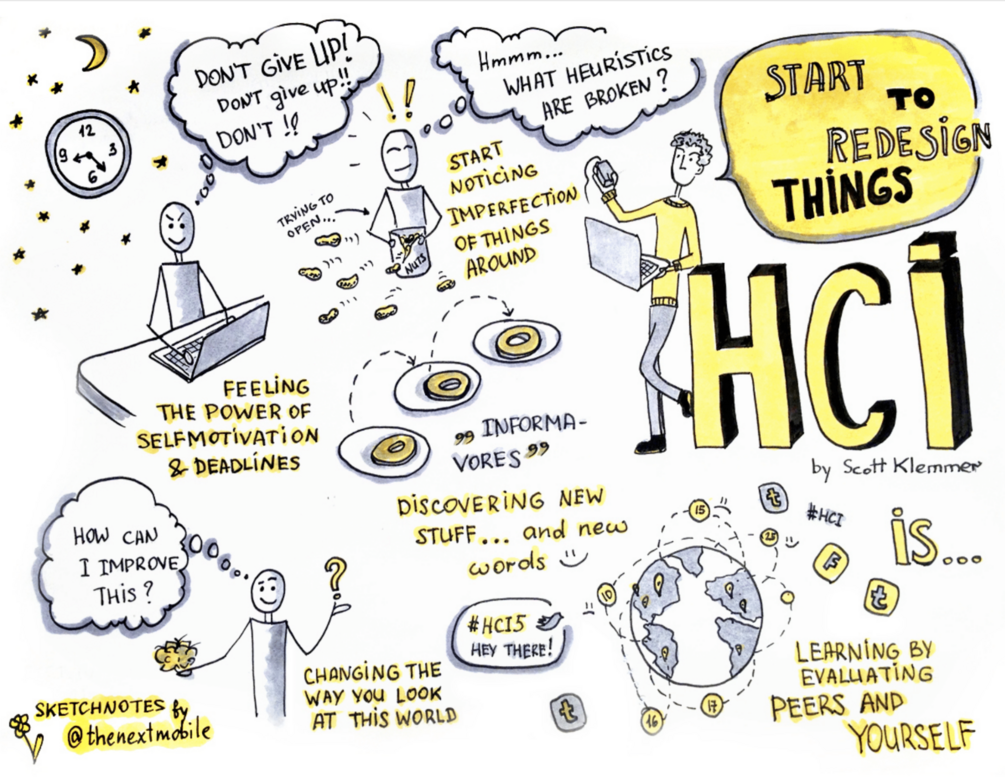 DON'T GIVE UP!
DON'T give up!!
DON'T !!
12
9
3
6
Hmmm...
WHAT HEURISTICS
ARE BROKEN?
START
TO
REDESIGN
THINGS
! !
START
NOTICING
IMPERFECTION
OF THINGS
AROUND
TRYING TO
OPEN...
NUTS
HCI
by Scott Klemmer
IS...
FEELING
THE POWER OF
SELFMOTIVATION
& DEADLINES
„ INFORMA-
VORES "
DISCOVERING NEW
STUFF... and new
words
HOW CAN
I IMPROVE
THIS?
?
CHANGING THE
WAY YOU LOOK
AT THIS WORLD
#HCI5
HEY THERE!
t
15
t
#HCI
25
F
t
10
16
17
LEARNING BY
EVALUATING
PEERS AND
YOURSELF
SKETCHNOTES by
@thenextmobile